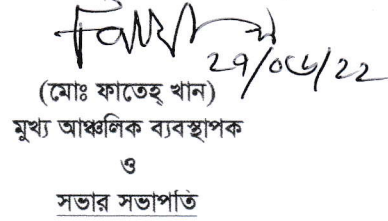 ২৭/০৬/২২
(মোঃ ফাতেহ্ খান)
মুখ্য আঞ্চলিক ব্যবস্থাপক
ও
সভার সভাপতি